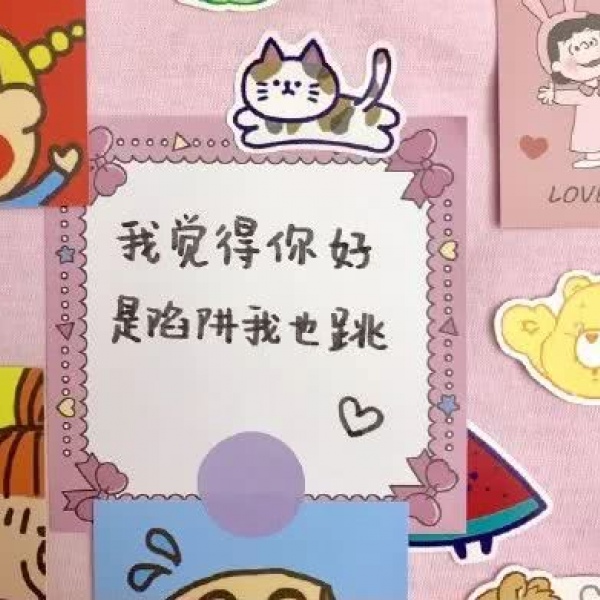 我觉得你好
是陷阱我也跳
LOVE